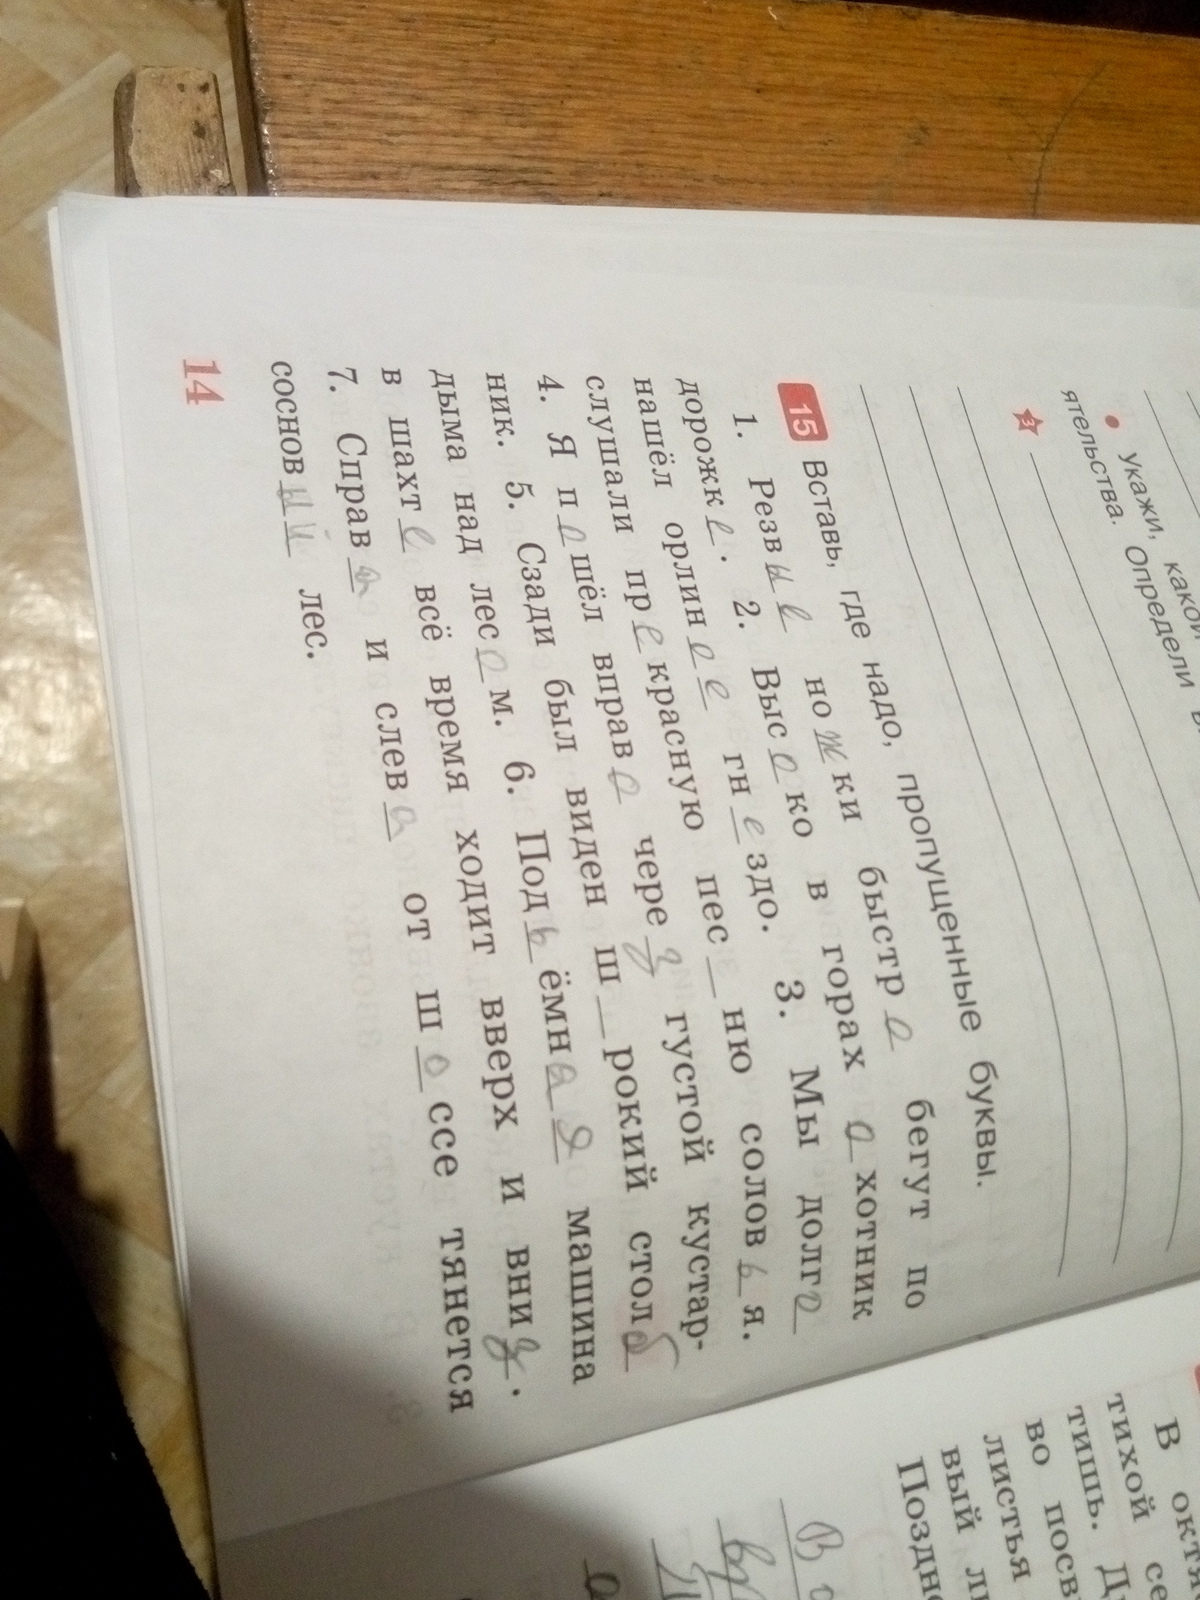 укажи, какой
ятельства. Определи
3
15 Вставь, где надо, пропущенные буквы.
1. Резвые ножки быстро бегут по
дорожке. 2. Высоко в горах охотник
нашёл орлинее гнездо. 3. Мы долго
слушали прекрасную пес_ню соловья.
4. Я пошёл вправо через густой кустар-
ник. 5. Сзади был виден ш_рокий столб
дыма над лесом. 6. Подьёмная машина
в шахте всё время ходит вверх и вниз.
7. Справа и слева от шоссе тянется
сосновый лес.
14
В октя
тихой се
тишь. Д
во посв
листья
вый л
Поздн